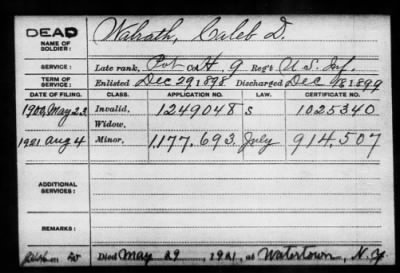 DEAD
NAME OF SOLDIER: Walrath, Caleb D.
SERVICE: Late rank, Pvt Co. H 9 Reg't U.S. Inf.
TERM OF SERVICE: Enlisted Dec 29 1898 Discharged Dec 1899
DATE OF FILING. CLASS. APPLICATION NO. LAW. CERTIFICATE NO.
1902, May 23 Invalid, 1249048 S 1025340
Widow,
1921 Aug 4 Minor, 1.177.693. July 914.507
ADDITIONAL SERVICES:
REMARKS:
Died May 29, 1921, at Watertown, N.Y.